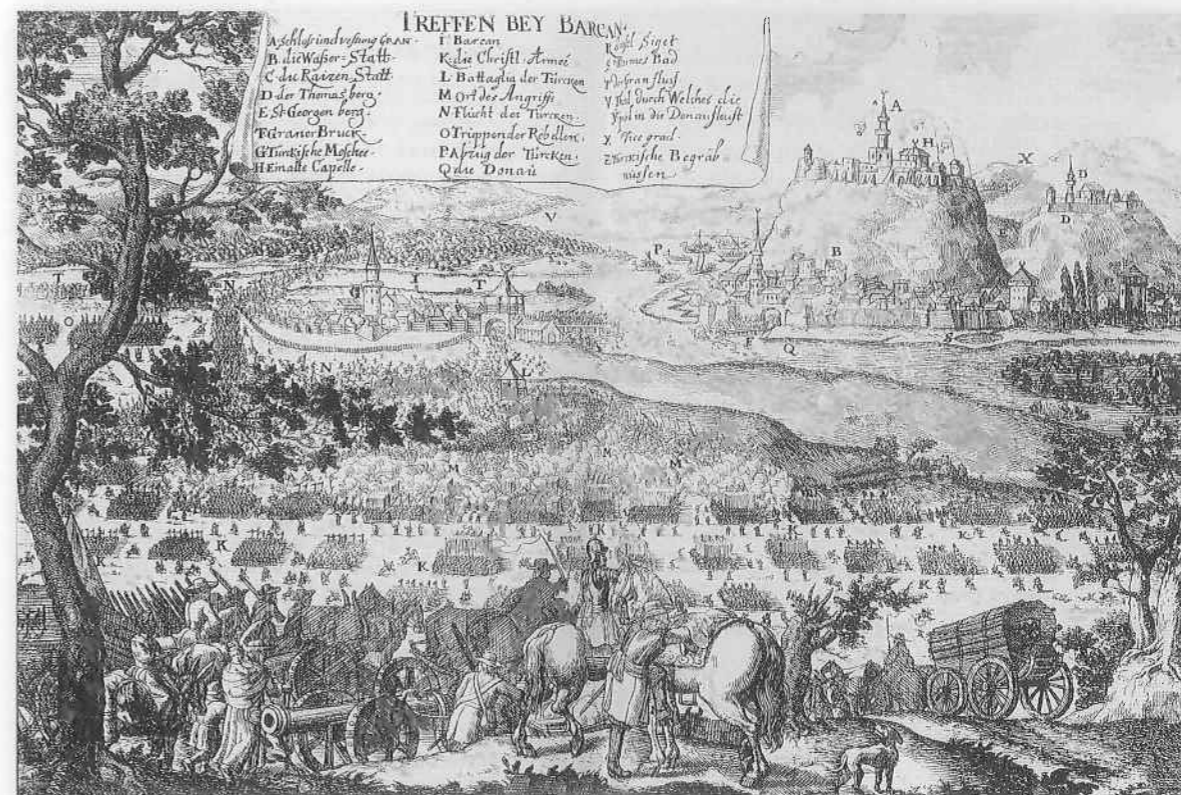 TREFFEN BEY BARCAN.
A. Schloss und vestung GRAN.
B. die Waßer-Statt.
C. die Raizen Statt
D. der Thomas berg.
E. St Georgen berg.
F. Graner Bruck.
G. Türckische Moschee.
H. Emalte Capelle.
I. Barcan
K. die Christl. Armeé
L. Battaglia der Türcken
M. Ort des Angriffs
N. Flucht der Türcken.
O. Trippen der Rebellen.
P. Abzug der Türcken.
Q. die Donau
Siget
Bad
Gran fluss
V. thal durch Welches die
Ypol in die Donau fleust
X. Vicegrad.
Z. Türckische Begräb
nüssen
A
H
X
D
D
V
P
B
T
N
G
I
T
O
N
Z
L
F
Q
S
M
M
M
K
K
K
K
K
K